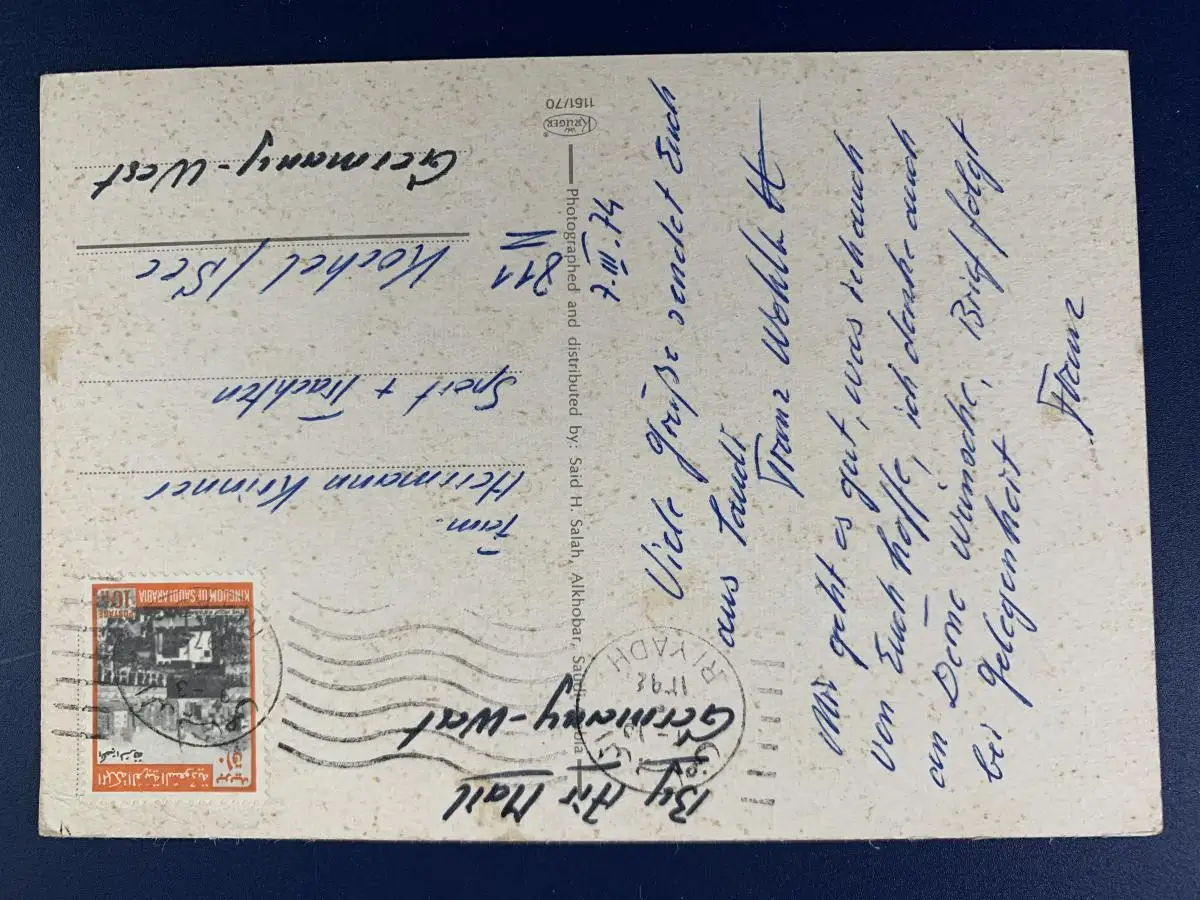 7.III.74
Viele Grüße sendet Euch
aus Saudi
Franz
Mir geht es gut, was ich auch
von Euch hoffe, ich denke auch
an Deine Wünsche, Brief folgt
bei Gelegenheit
Franz
Photographed and distributed by: Said H. Salah, Alkhobar, Saudi Arabia
KRÜGER
1151/70
By Air Mail
Germany-West
RIYADH
المملكة العربية السعودية
بريد
KINGDOM OF SAUDI ARABIA
POSTAGE
10
Fam.
Hermann Krinner
Sport + Trachten
811
Kochel/See
Germany-West